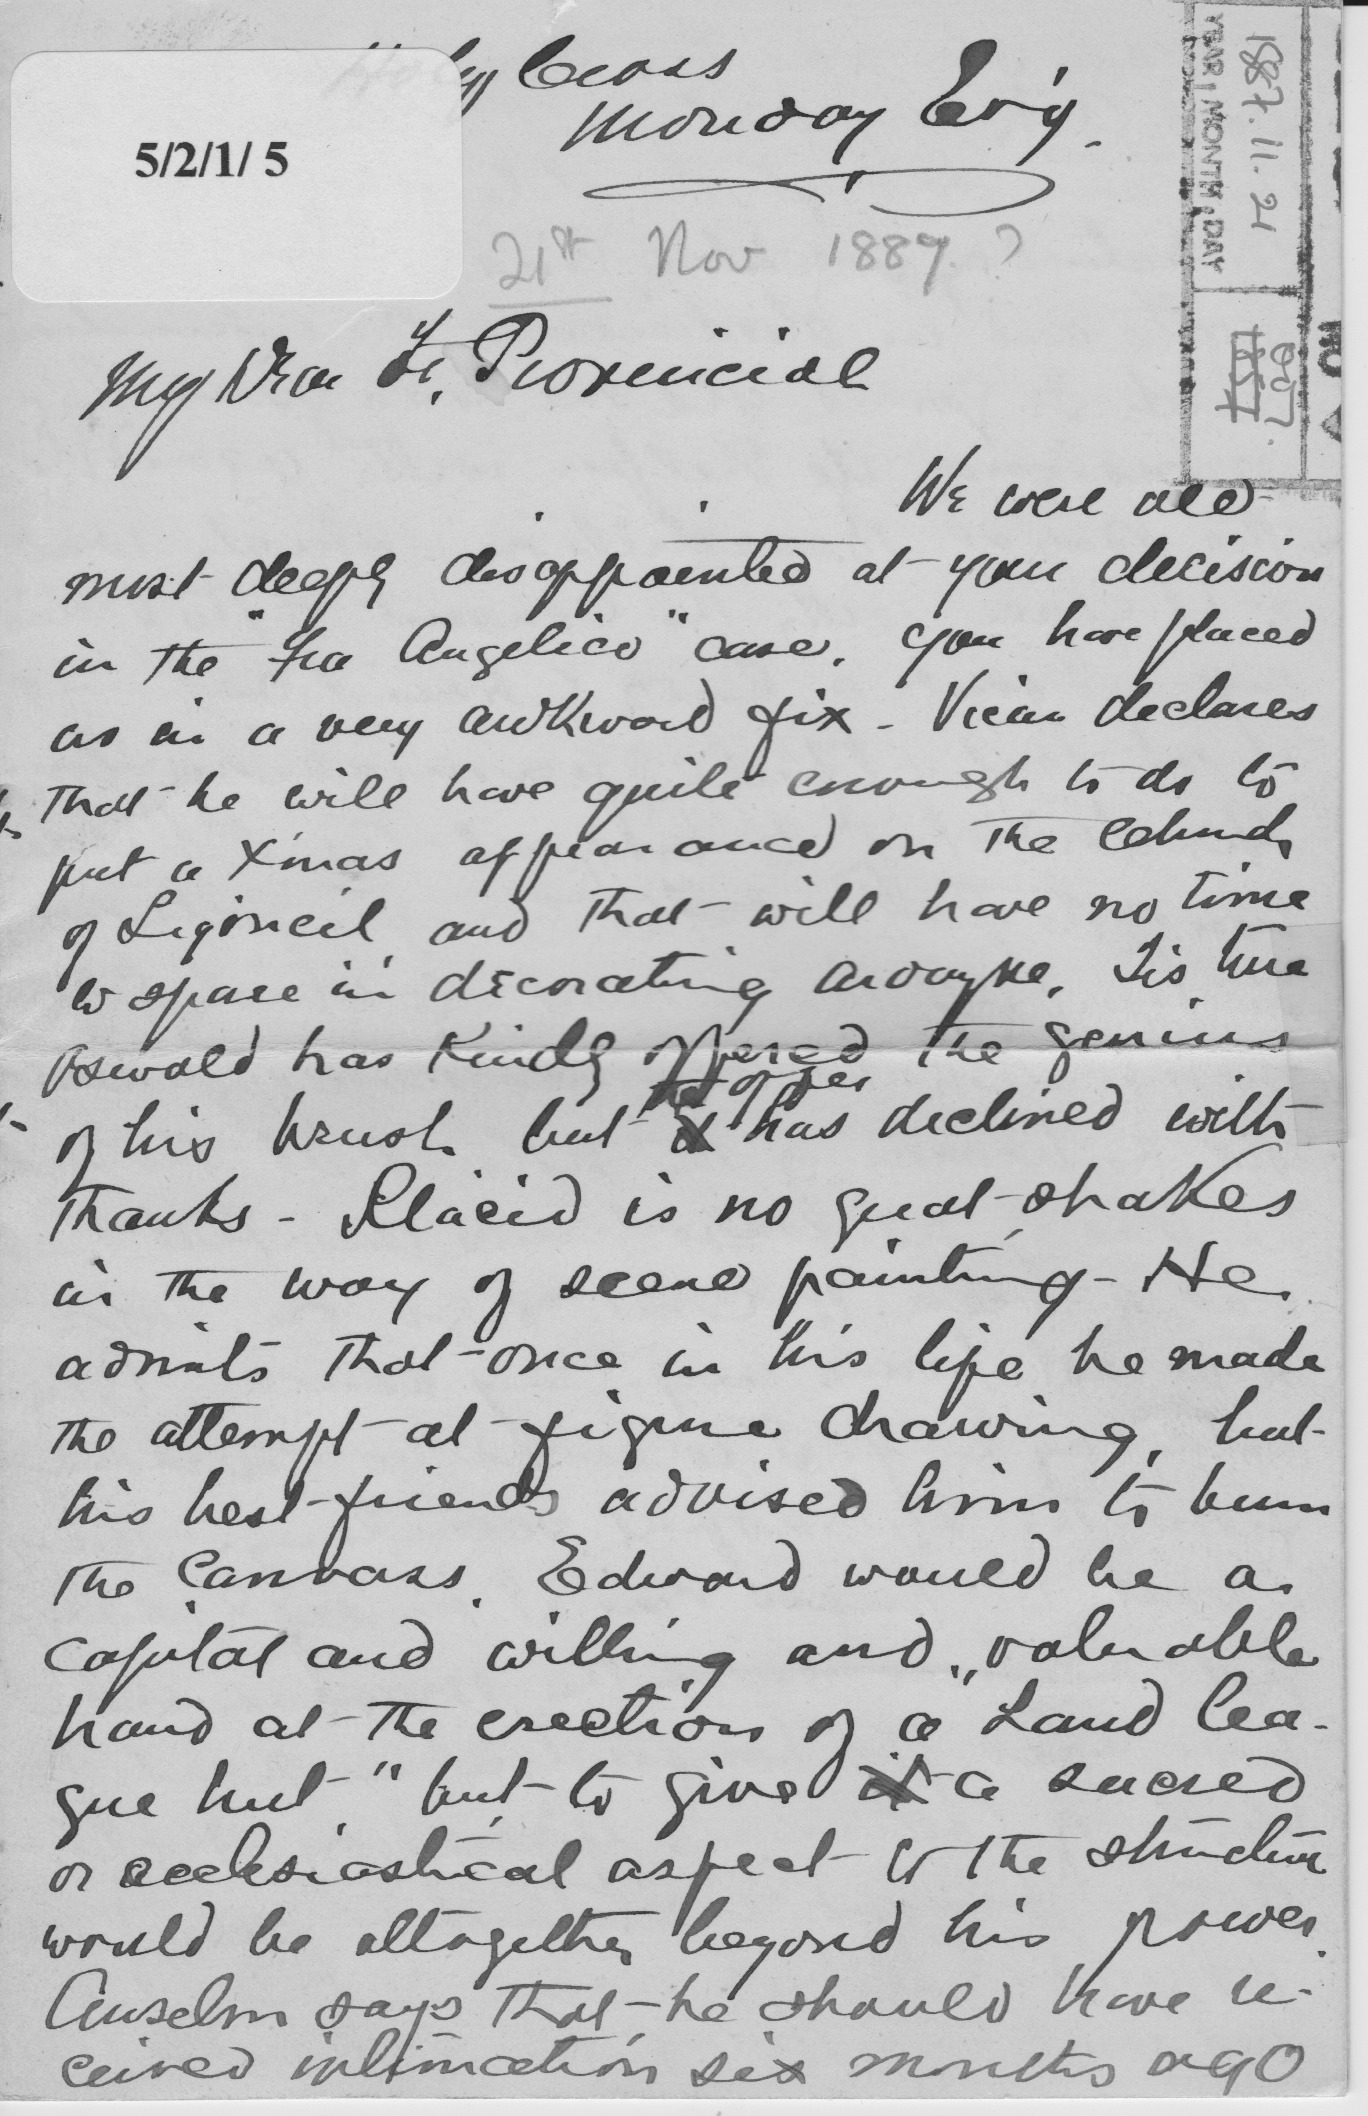 Holy Cross
Monday Ev'g.
5/2/1/ 5
21st Nov 1887. ?
1887. 11. 21
YEAR, MONTH, DAY
007
NO
My Dear Fr. Provincial
We were all
most deeply disappointed at your decision
in the "Fra Angelico" case. You have placed
us in a very awkward fix - Vicar declares
that he will have quite enough to do to
put a Xmas appearance on the Church
of Ligoneil and that will have no time
to spare in decorating Ardoyne. Tis true
Oswald has kindly offered the genius
of his brush but the offer has declined with
thanks - Placid is no great shakes
in the way of scene painting - He
admits that once in his life he made
the attempt at figure drawing, but
his best friends advised him to burn
the Canvass. Edward would be a
capital and willing and valuable
hand at the erection of a "Land Lea-
gue hut," but to give a sacred
or ecclesiastical aspect to the structure
would be altogether beyond his power.
Anselm says that he should have re-
ceived intimation six months ago